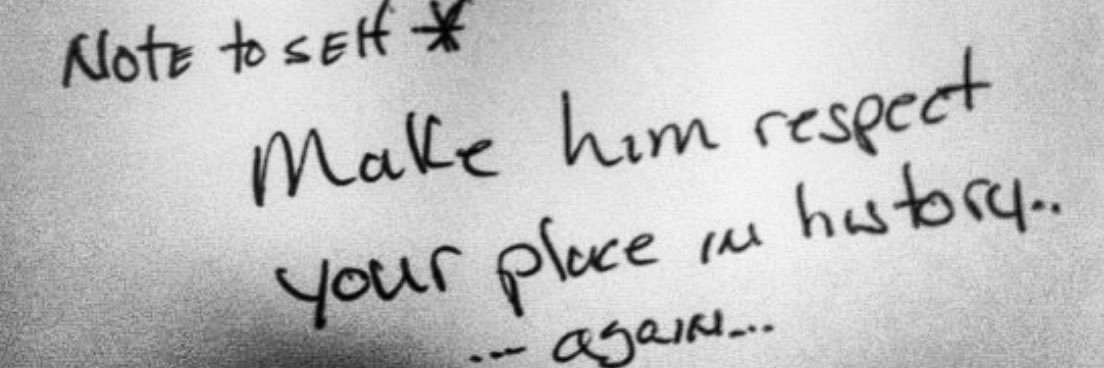 Note to self *
Make him respect
your place in history..
... again...